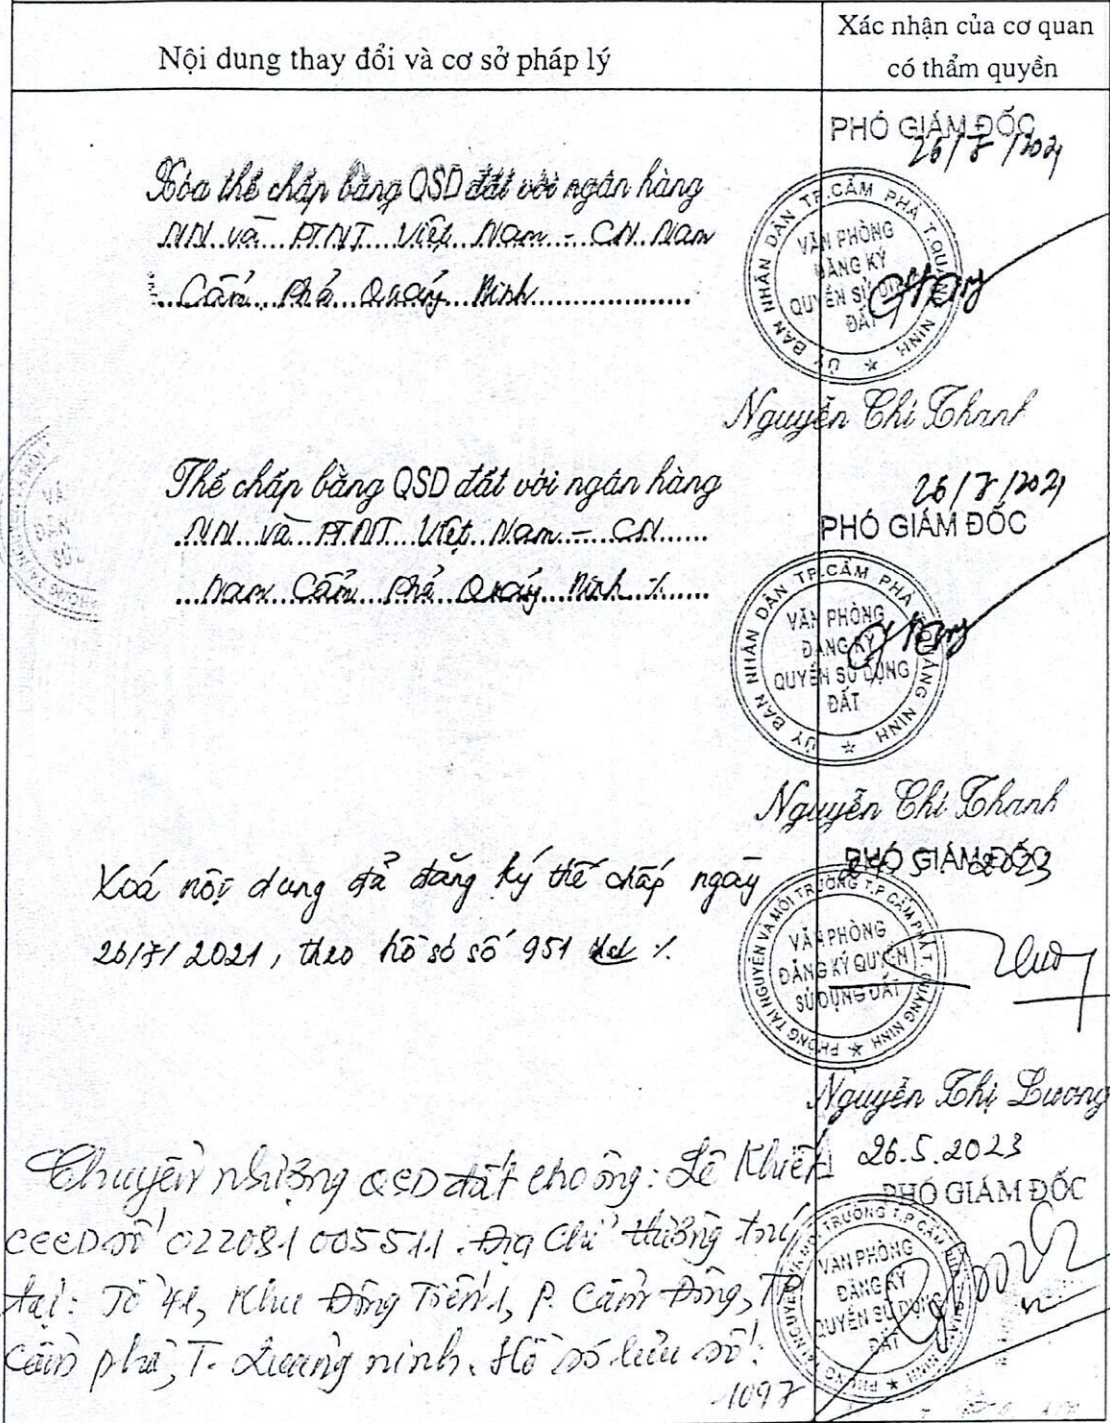 Nội dung thay đổi và cơ sở pháp lý
Xác nhận của cơ quan
có thẩm quyền
PHÓ GIÁM ĐỐC
26/7/2021
Xóa thế chấp bằng QSD đất với ngân hàng
NN và PTNT Việt Nam - CN Nam
Cẩm Phả Quảng Ninh
ỦY BAN NHÂN DÂN TP.CẨM PHẢ T.QUẢNG NINH
VĂN PHÒNG
ĐĂNG KÝ
QUYỀN SỬ DỤNG
ĐẤT
Nguyễn Chí Thanh
Thế chấp bằng QSD đất với ngân hàng
NN và PTNT Việt Nam - CN
Nam Cẩm Phả Quảng Ninh ./.
26/7/2021
PHÓ GIÁM ĐỐC
ỦY BAN NHÂN DÂN TP.CẨM PHẢ QUẢNG NINH
VĂN PHÒNG
ĐĂNG KÝ
QUYỀN SỬ DỤNG
ĐẤT
Nguyễn Chí Thanh
PHÓ GIÁM ĐỐC
Xoá nội dung đã đăng ký thế chấp ngày
26/7/2021, theo hồ sơ số 951 ./.
PHÒNG TÀI NGUYÊN VÀ MÔI TRƯỜNG T.P CẨM PHẢ T. QUẢNG NINH
VĂN PHÒNG
ĐĂNG KÝ QUYỀN
SỬ DỤNG ĐẤT
Nguyễn Thị Lương
26.5.2023
PHÓ GIÁM ĐỐC
Chuyển nhượng QSD đất cho ông: Lê Khiết
CCCD số 022081005511. Địa chỉ thường trú
tại: Tổ 41, Khu Đông Tiến 1, P. Cẩm Đông, TP
Cẩm phả, T. Quảng ninh. Hồ sơ lưu số:
1097
VĂN PHÒNG
ĐĂNG KÝ
QUYỀN SỬ DỤNG
ĐẤT